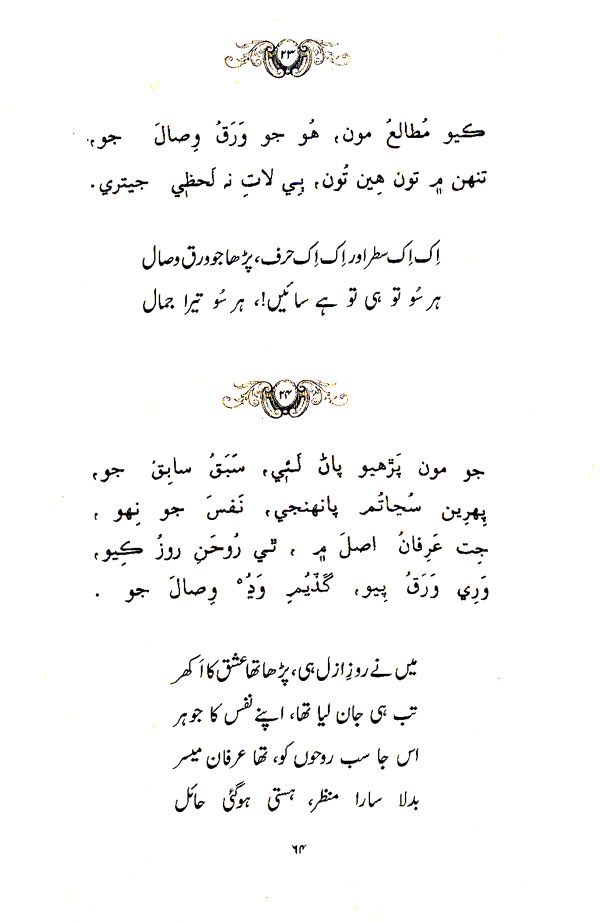 ۲۳
ڪيو مُطالعُ مون، هُو جو وَرَقُ وِصالَ جو،
تنهن ۾ تون هِين تُون، ٻِي لاتِ نہ لَحظي جيتري.
اِک اِک سطر اور اِک اِک حرف، پڑھا جو ورق وصال
ہر سُو تو ہی تو ہے سائیں!، ہر سُو تیرا جمال
۲۴
جو مون پَڙهيو پاڻ لَئي، سَبَقُ سابِقُ جو،
پِهرين سُڃاتُم پانهنجي، نَفسَ جو نِهو،
جِت عَرِفانُ اصلَ ۾، ٿي رُوحَنِ روزُ ڪِيو،
وَرِي وَرَقُ پِيو، گَڏيُمِ وَڍُ وِصالَ جو.
میں نے روزِ ازل ہی، پڑھا تھا عشق کا اَکھر
تب ہی جان لیا تھا، اپنے نفس کا جوہر
اس جا سب روحوں کو، تھا عرفان میسر
بدلا سارا منظر، ہستی ہوگئی حائل
۶۴